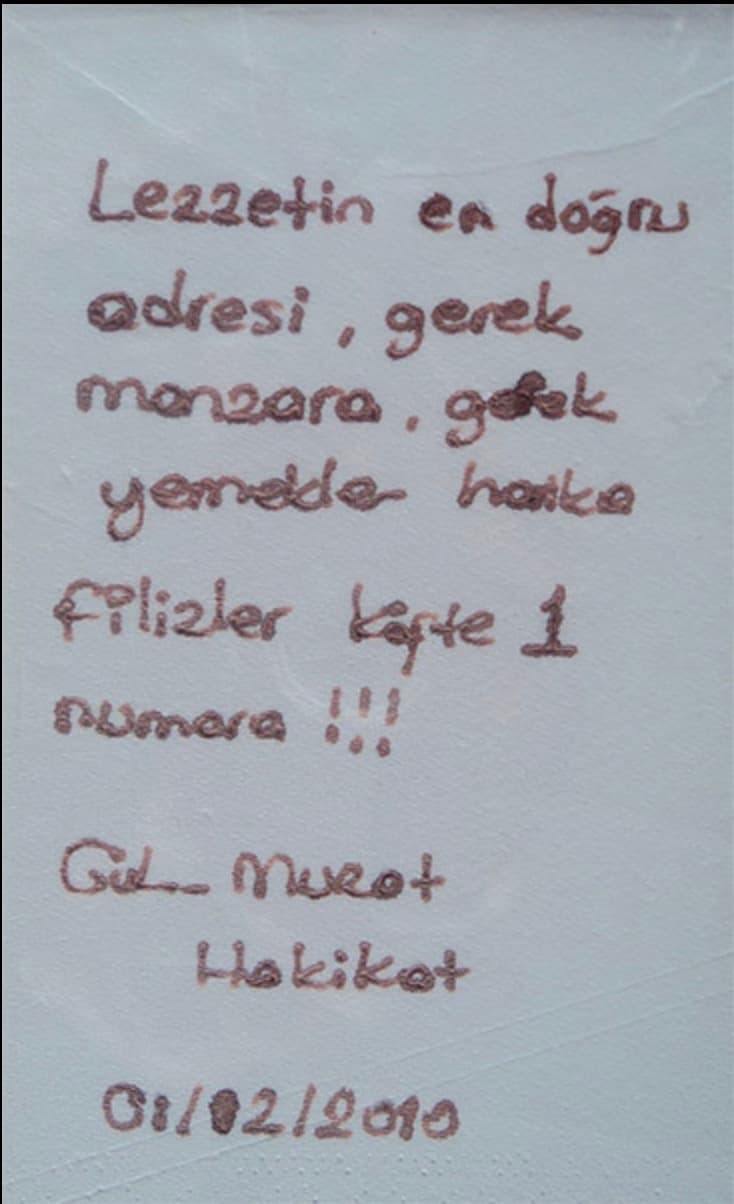 Lezzetin en doğru
adresi, gerek
manzara, gerek
yemekler harika
filizler köfte 1
numara !!!
Gül Murat
Hakikat
01/02/2010